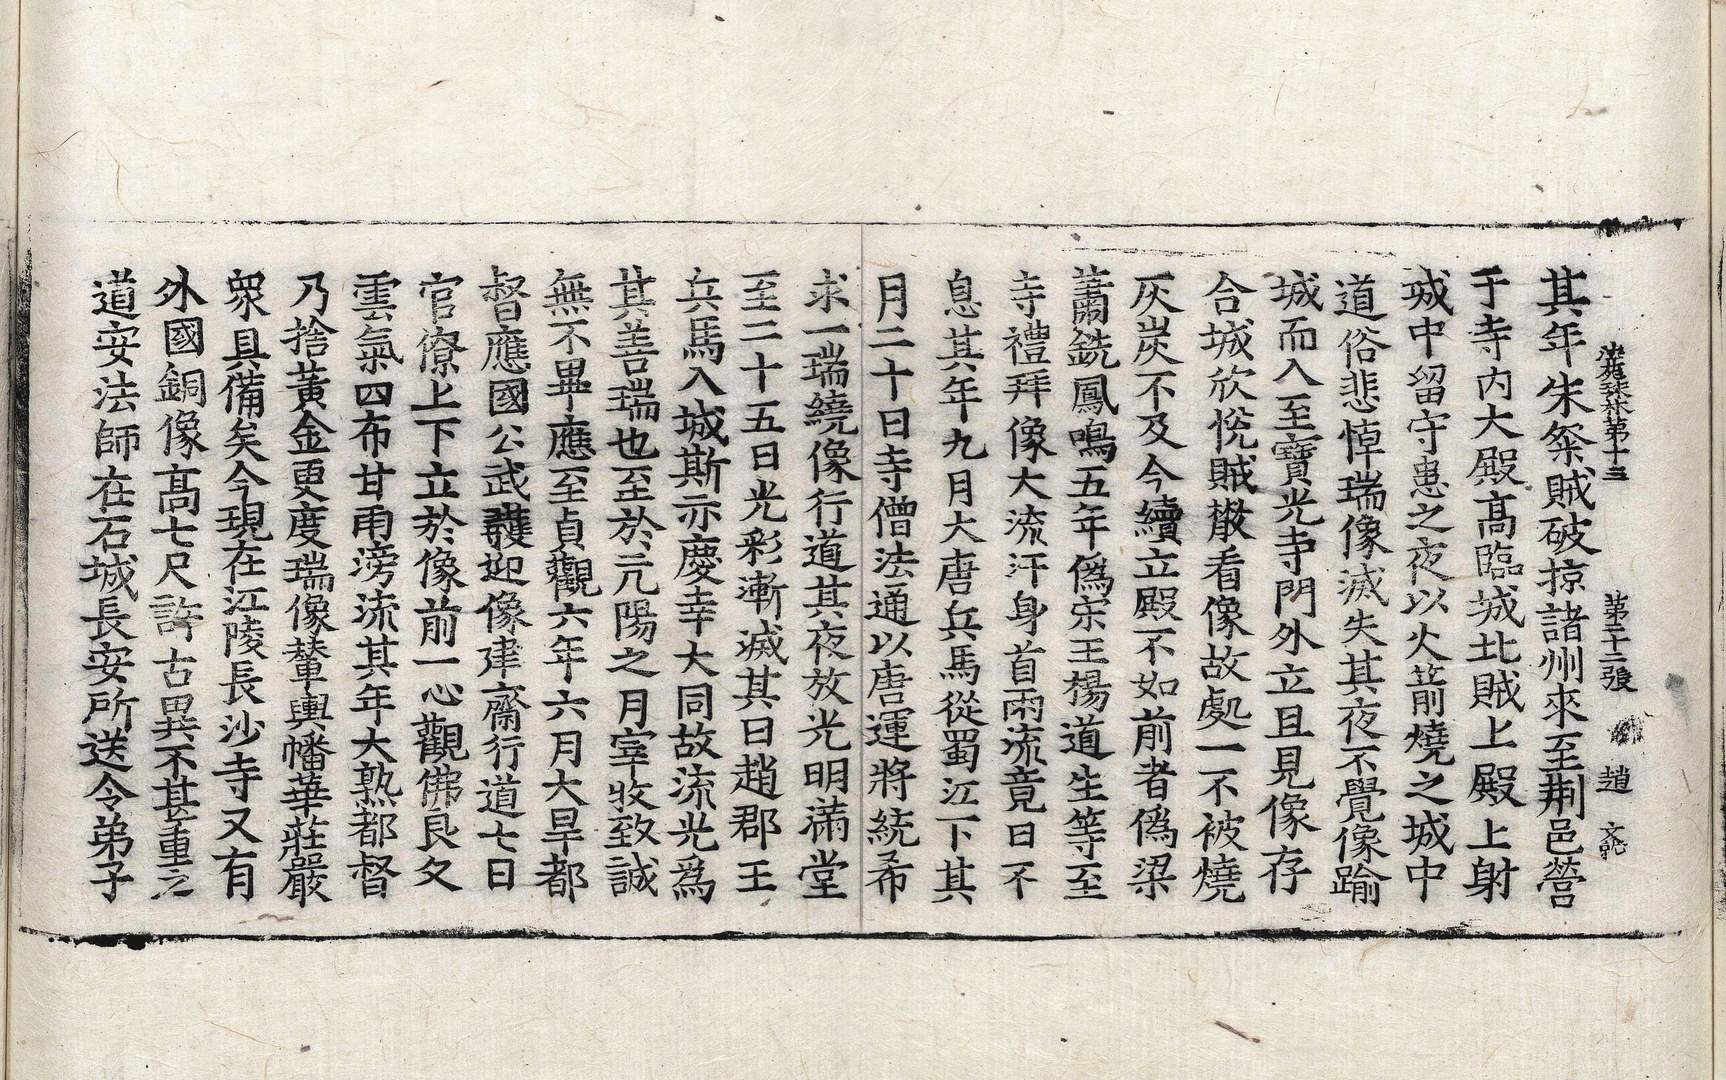 法苑珠林第十三 第三十二張 趙
其年朱粲賊破掠諸州來至荆邑營
于寺内大殿髙臨城北賊上殿上射
城中留守患之夜以火箭燒之城中
道俗悲悼瑞像滅失其夜不覺像踰
城而入至寶光寺門外立且見像存
合城欣悅賊散看像故處一不被燒
灰炭不及今續立殿不如前者僞梁
蕭銑鳳鳴五年僞宋王楊道生等至
寺禮拜像大流汗身首雨流竟日不
息其年九月大唐兵馬從蜀江下其
月二十日寺僧法通以唐運將統希
求一瑞繞像行道其夜放光明滿堂
至二十五日光彩漸滅其日趙郡王
兵馬入城斯亦慶幸大同故流光爲
其善瑞也至於亢陽之月宰牧致誠
無不畢應至貞觀六年六月大旱都
督應國公武䕶迎像建齋行道七日
官僚上下立於像前一心觀佛良久
雲氣四布甘雨滂流其年大熟都督
乃捨黃金更度瑞像輦輿幡華莊嚴
衆具備矣今現在江陵長沙寺又有
外國銅像髙七尺許古異不甚重之
道安法師在石城長安所送令弟子